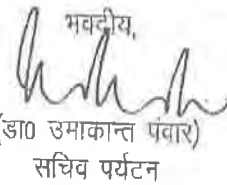 भवदीय,
(डा0 उमाकान्त पंवार)
सचिव पर्यटन